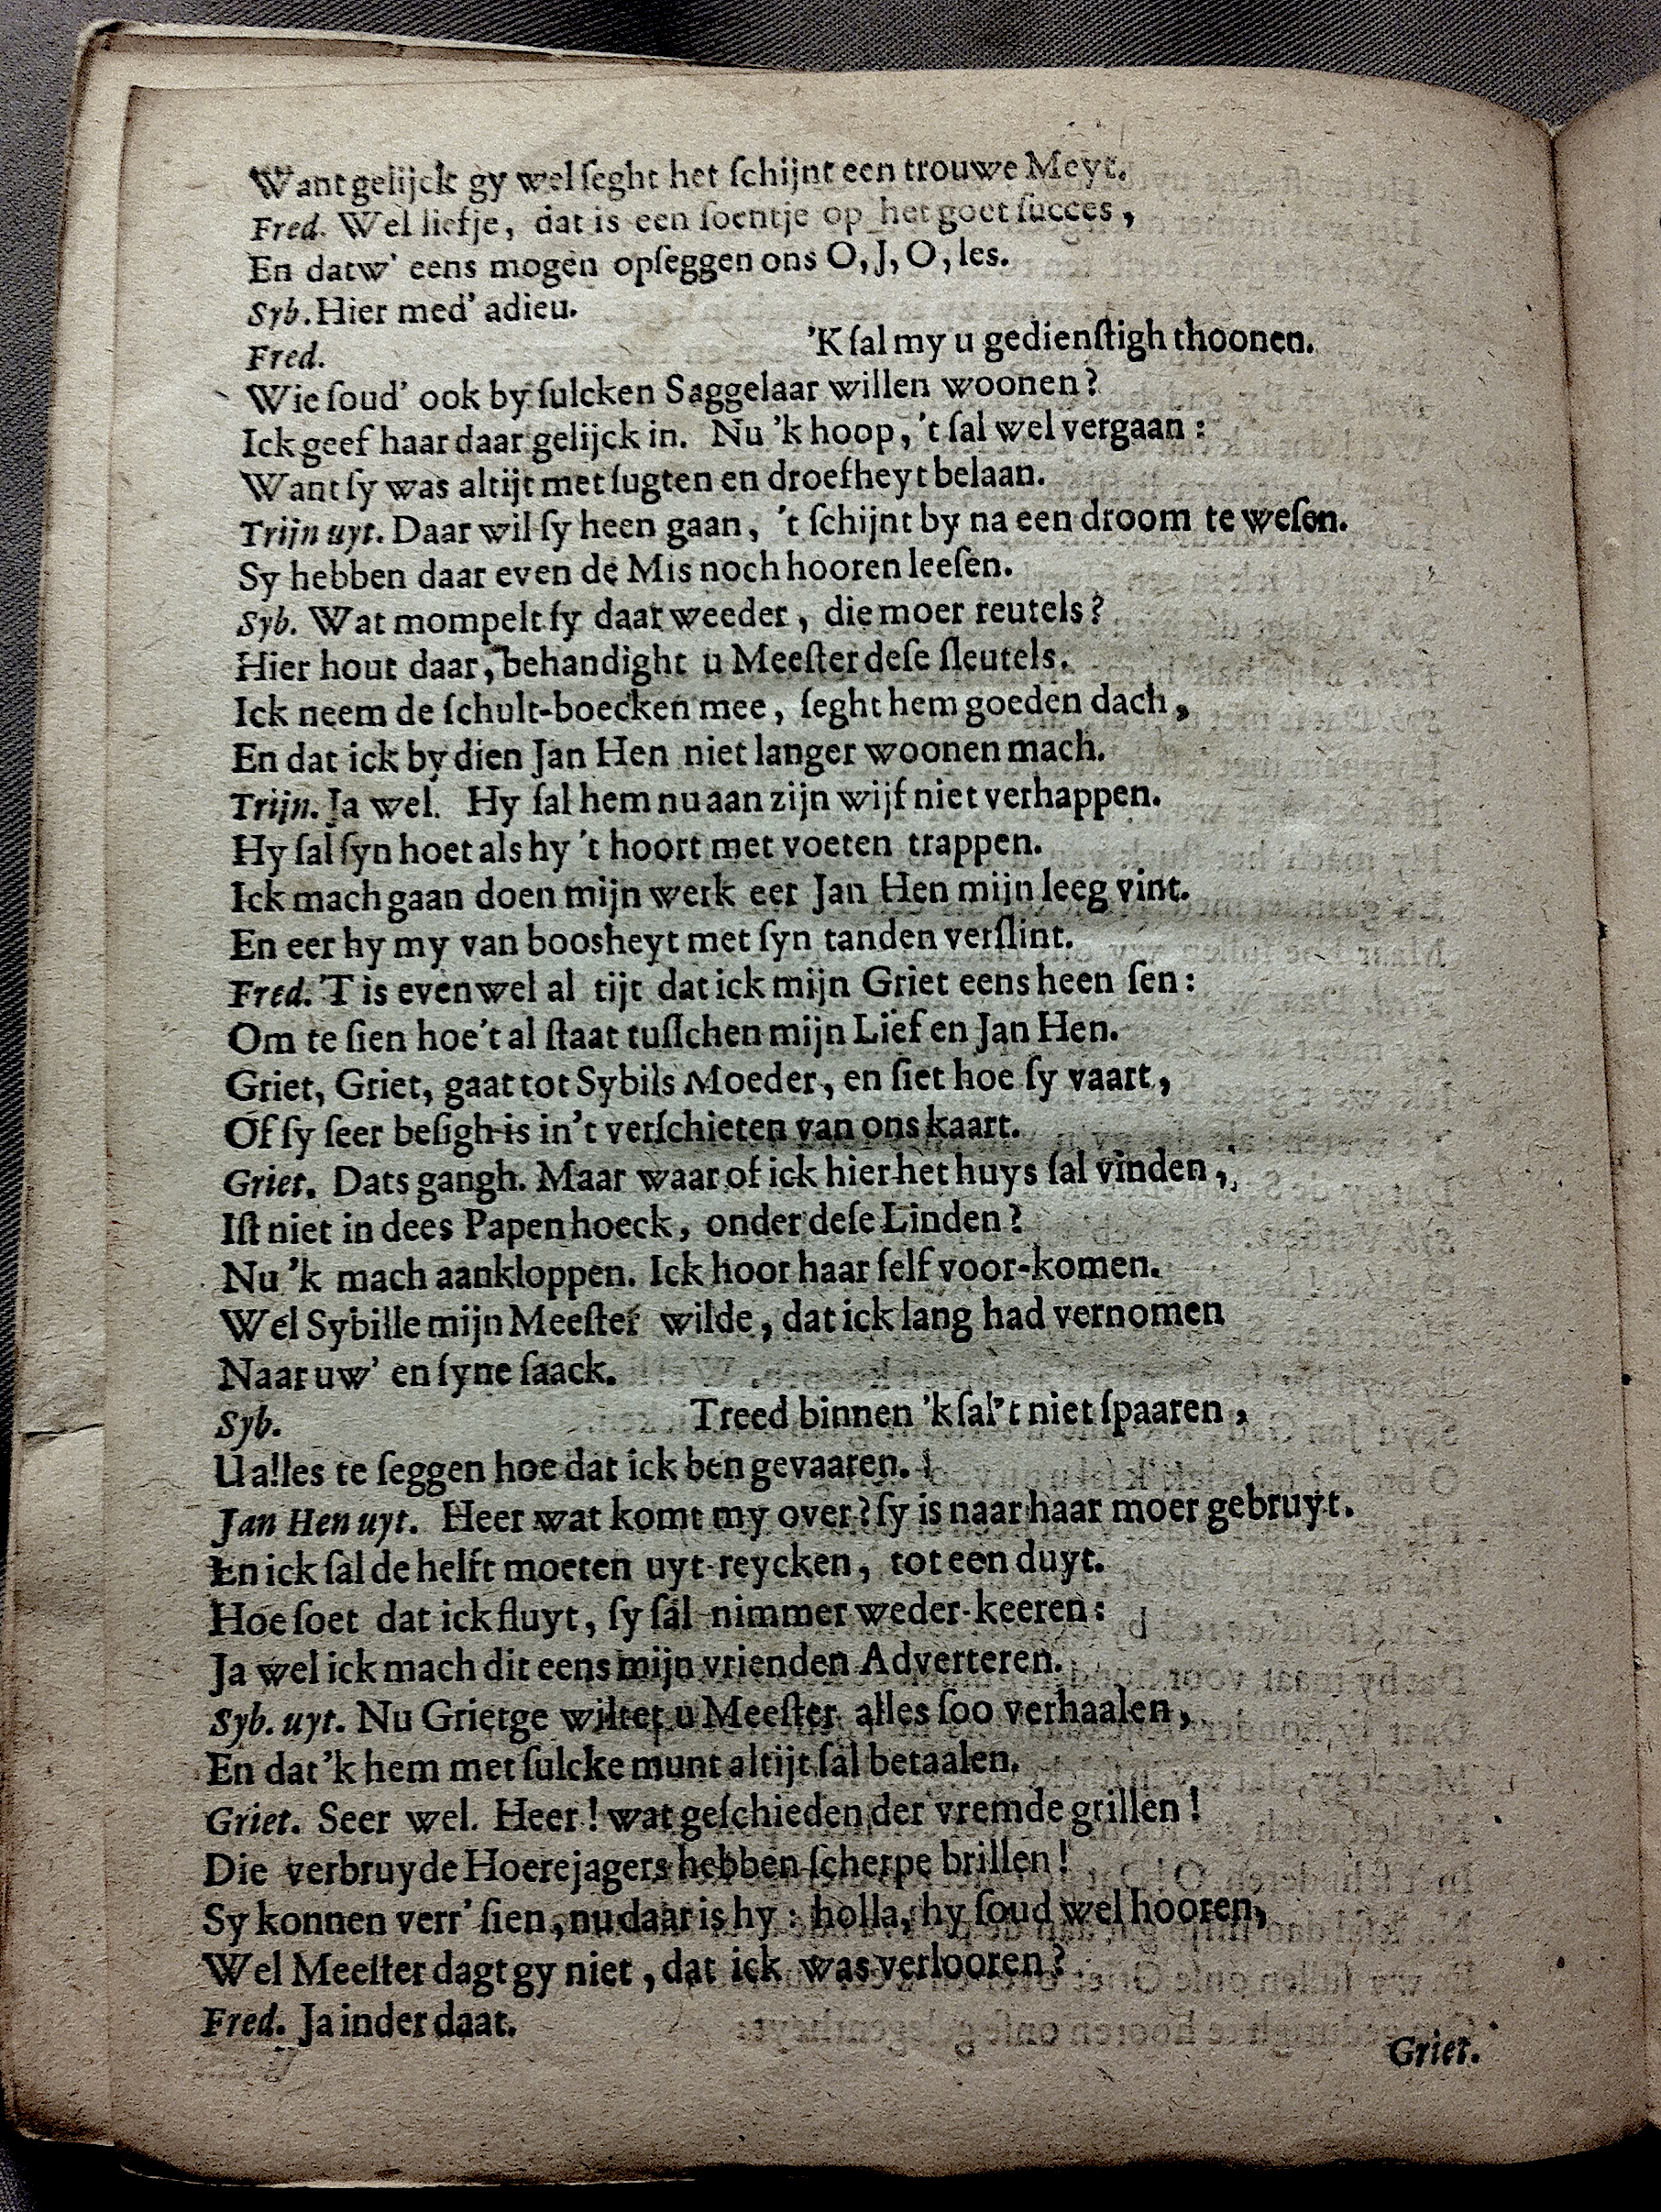 Want gelijck gy wel ſeght het ſchijnt een trouwe Meyt.
Fred. Wel liefje, dat is een ſoentje op het goet ſucces,
En datw' eens mogen opſeggen ons O, J, O, les.
Syb. Hier med' adieu.
Fred. 'K ſal my u gedienſtigh thoonen.
Wie ſoud' ook by ſulcken Saggelaar willen woonen?
Ick geef haar daar gelijck in. Nu 'k hoop, 't ſal wel vergaan:
Want ſy was altijt met ſugten en droefheyt belaan.
Trijn uyt. Daar wil ſy heen gaan, 't ſchijnt by na een droom te weſen.
Sy hebben daar even de Mis noch hooren leeſen.
Syb. Wat mompelt ſy daar weeder, die moer reutels?
Hier hout daar, behandight u Meeſter deſe ſleutels.
Ick neem de ſchult-boecken mee, ſeght hem goeden dach,
En dat ick by dien Jan Hen niet langer woonen mach.
Trijn. Ja wel. Hy ſal hem nu aan zijn wijf niet verhappen.
Hy ſal ſyn hoet als hy 't hoort met voeten trappen.
Ick mach gaan doen mijn werk eer Jan Hen mijn leeg vint.
En eer hy my van boosheyt met ſyn tanden verſlint.
Fred. 'T is evenwel al tijt dat ick mijn Griet eens heen ſen:
Om te ſien hoe't al ſtaat tuſſchen mijn Lief en Jan Hen.
Griet, Griet, gaat tot Sybils Moeder, en ſiet hoe ſy vaart,
Of ſy ſeer beſigh is in't verſchieten van ons kaart.
Griet. Dats gangh. Maar waar of ick hier het huys ſal vinden,
Iſt niet in dees Papenhoeck, onder deſe Linden?
Nu 'k mach aankloppen. Ick hoor haar ſelf voor-komen.
Wel Sybille mijn Meeſter wilde, dat ick lang had vernomen
Naar uw' en ſyne ſaack.
Syb. Treed binnen 'k ſal 't niet ſpaaren,
U alles te ſeggen hoe dat ick ben gevaaren.
Jan Hen uyt. Heer wat komt my over? ſy is naar haar moer gebruyt.
En ick ſal de helft moeten uyt-reycken, tot een duyt.
Hoe ſoet dat ick fluyt, ſy ſal nimmer weder-keeren:
Ja wel ick mach dit eens mijn vrienden Adverteren.
Syb. uyt. Nu Grietge wiltet u Meeſter alles ſoo verhaalen,
En dat 'k hem met ſulcke munt altijt ſal betaalen.
Griet. Seer wel. Heer! wat geſchieden der vremde grillen!
Die verbruyde Hoerejagers hebben ſcherpe brillen!
Sy konnen verr' ſien, nu daar is hy: holla, hy ſoud wel hooren,
Wel Meeſter dagt gy niet, dat ick was verlooren?
Fred. Ja inder daat.
Griet.